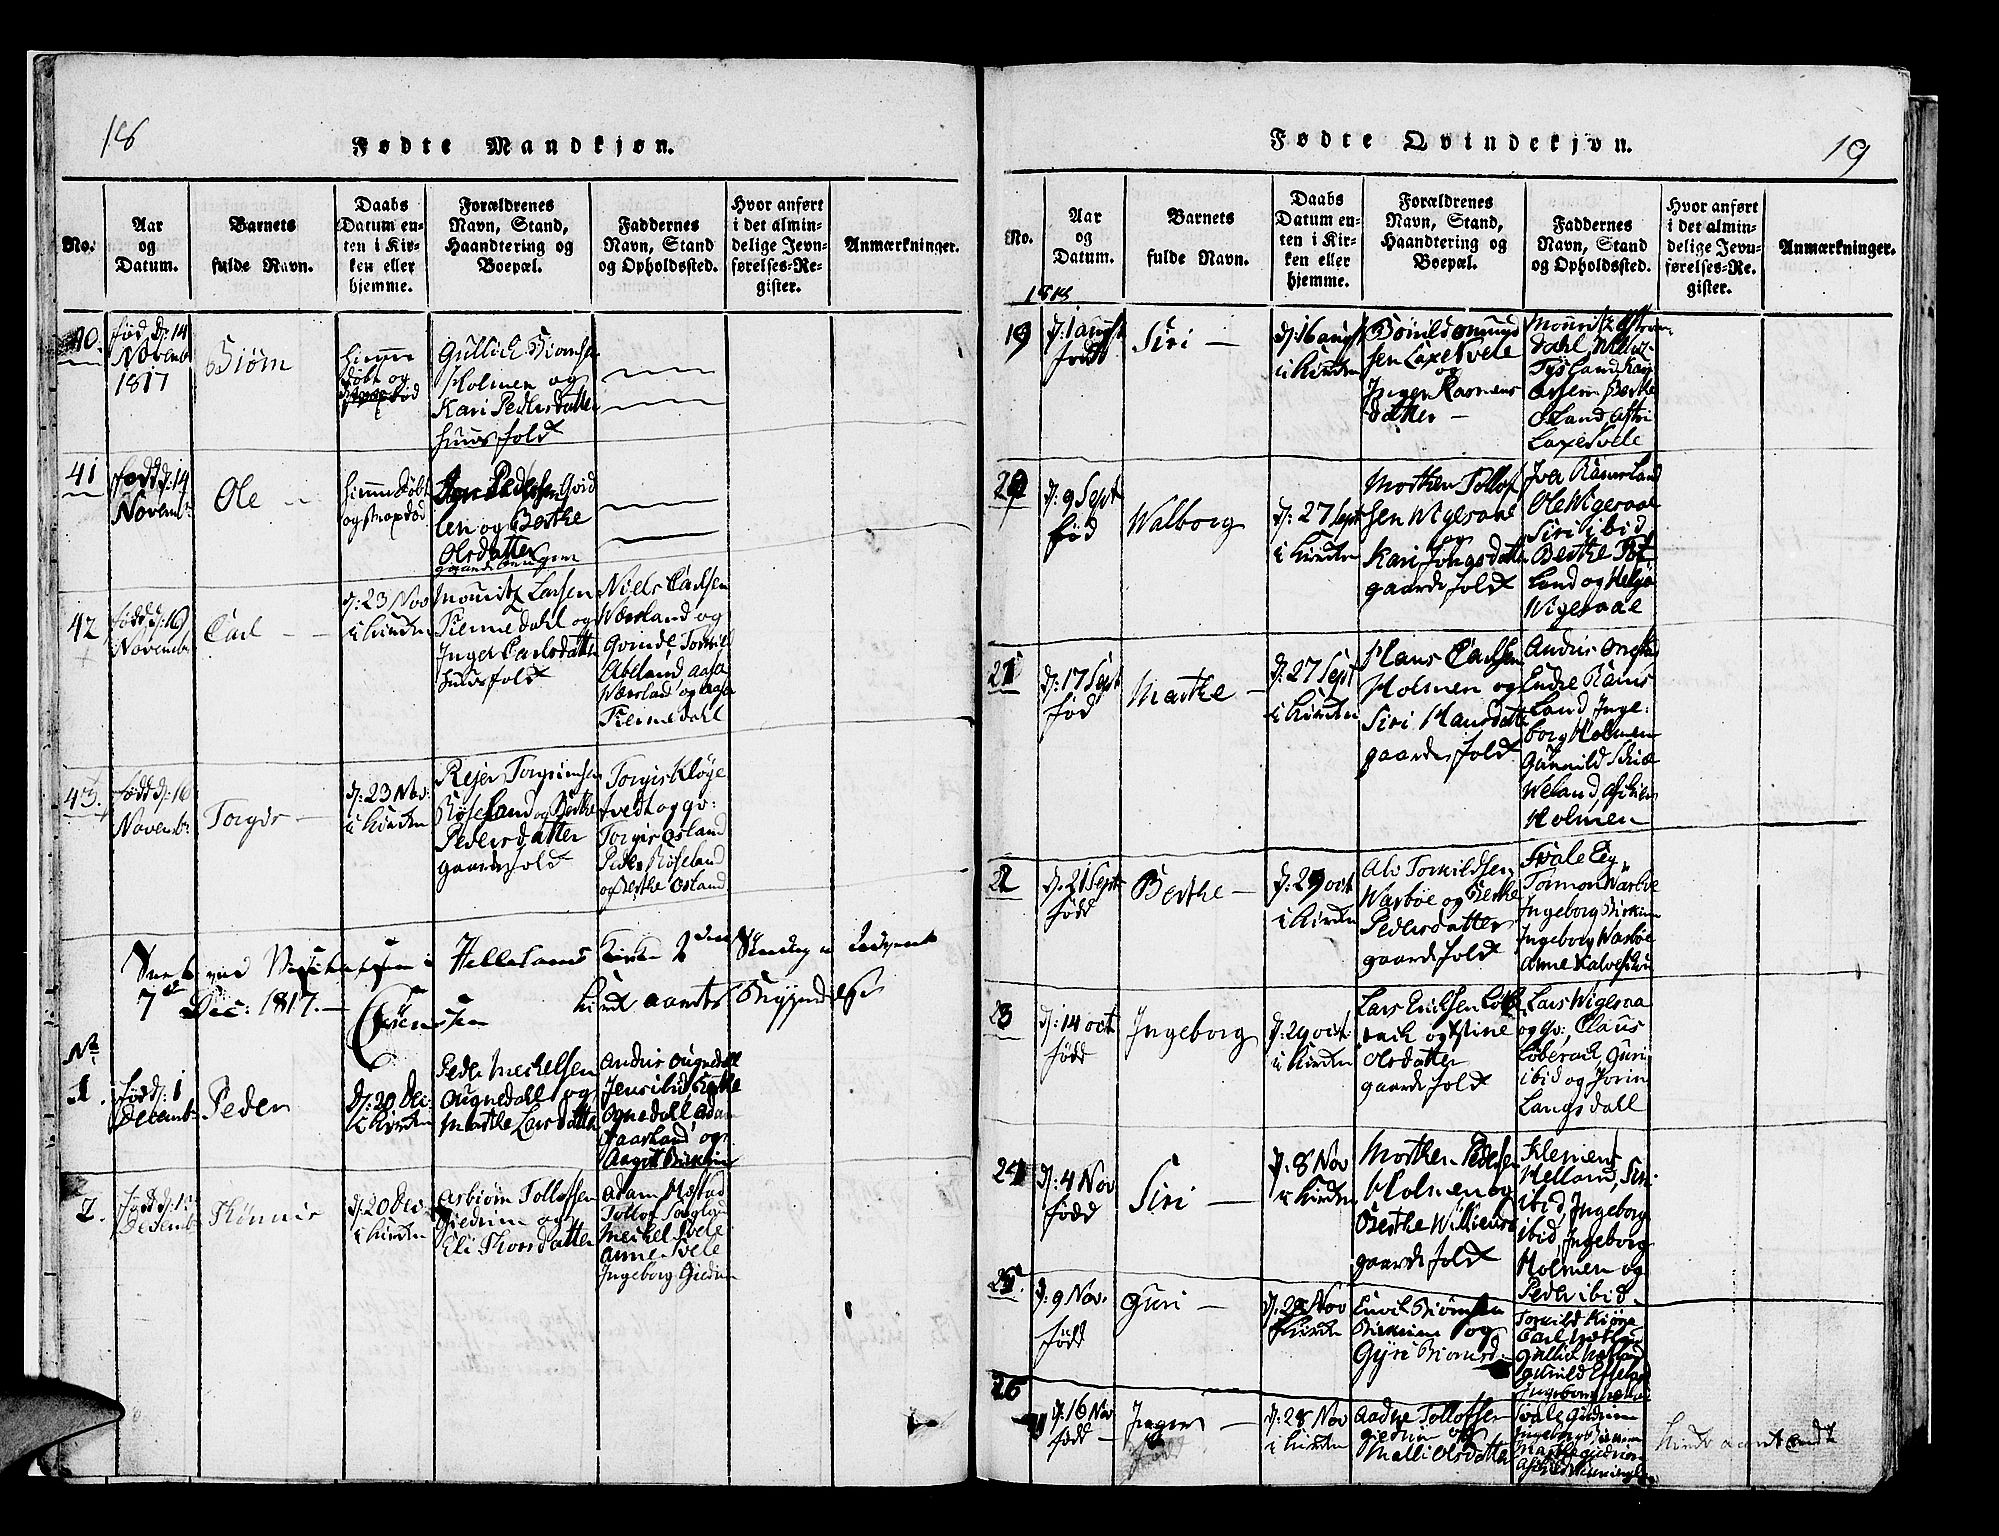 18
Fødte Mandkjøn.
No.
Aar
og
Datum.
Barnets
fulde Navn.
Daabs
Datum en-
ten i Kir-
ken eller
hjemme.
Forældrenes
Navn, Stand,
Haandtering og
Boepæl.
Faddernes
Navn, Stand
og Opholdssted.
Hvor anført
i det almin-
delige Jevn-
førelses-Re-
gister.
Anmærkninger.
40.
fød d: 14
Novemb
1817
Biørn
hiemme
døbt og
død
Gullich Biørnsen
Holmen og
Kari Pedersdatter
huusfolk
41
født d: 14
Novemb:
Ole
hiemmedøbt
og død
Pedersen Qvid
len og Berthe
Olsdatter
42
født d: 19
Novemb:
Carl
d: 23 Nov
i Kirken
Mouritz Larsen
Tiennedahl og
Inger Carlsdatter
huusfolk
Niels Carlsen
Wersland og
Qvinde Torkild
Abeland, Aasa
Wersland og Aasa
Tiennedahl
43.
født d: 16
Novemb:
Torgis
d: 23 Nov:
i Kirken
Rejer Torgiersen
Røseland og Berthe
Pedersdatter
gaardsfolk
Torgis Kløge
tvedt og qv:
Torgis Osland
Peder Røseland
og Berthe Osland
Seet ved Visitatsen i Hellelands Kirke 2den Søndag i Advent
7de Dec: 1817.
Sørensen
No
1.
fød d: 1
Decemb:
Peder
d: 20 Dec:
i Kirken
Peder Meckelsen
Ougnedahl og
Marthe Larsdatter
Andris Ougnedahl
Jens ibid Berthe
Ognedahl Adam
Faarland, og
Aagot Birkrem
2.
født d: 10
Decemb:
Thønnis
d: 20 Dec:
i Kirken
Asbiørn Tollofsen
Giedrem og
Eli Thorsdatter
Adam Mæstad
Tollof
Meckel Svele
Anne Svele
Ingeborg Giedrem
Fødte Qvindekjøn.
19
No.
Aar
og
Datum.
Barnets
fulde Navn.
Daabs
Datum en-
ten i Kir-
ken eller
hjemme.
Forældrenes
Navn, Stand,
Haandtering og
Boepæl.
Faddernes
Navn, Stand
og Opholdssted.
Hvor anført
i det almin-
delige Jevn-
førelses-Re-
gister.
Anmærkninger.
1818
19
d: 1 Aug:
født
Siri
d: 16 Aug:
i Kirken
Bovild Omund
sen Laxesvele
og
Inger Rasmus
datter
Mouritz
dahl
Berthe
Osland Astri
Laxesvele
20
d: 9 Sept
fød
Walborg
d: 27 Sept
i Kirken
Morthen Tollof
sen Wigesaae
og
Kari Jonsdatter
gaardsfolk
Iver Ramsland
Ole Wigesaae
Siri ibid
Berthe Tys
land og Helge
Wigesaae
21
d: 17 Sept
fød
Marthe
d. 27 Sept
i Kirken
Hans Carlsen
Holmen og
Siri Hansdatter
gaardsfolk
Andris
Endre Rams
land Inge-
borg Holmen
Gunnild
Weland
Holmen
22
d: 21 Sept
født
Berthe
d: 29 oct
i Kirken
Als Torkildsen
Warbøe og Berthe
Pedersdatter
gaardsfolk
Svale Eeg
Tormon Warbøe
Ingeborg Birkrem
Ingeborg Warbøe
Anne
23
d: 14 oct
født
Ingeborg
d: 29 oct:
i Kirken
Lars Erichsen Løbe
rack og Stine
Olsdatter
gaardsfolk
Lars Wigesaa
og qv: Claus
Løberack, Guri
ibid og Jorin
Langsdahl
24
d: 4 Nov
født
Siri
d. 8 Nov
i Kirken
Morthen Pedersen
Holmen og
Berthe Willums
gaardsfolk
Klemen
Helland, Siri
ibid, Ingeborg
ibid, Ingeborg
Holmen og
Peder ibid
25.
d: 9 Nov.
født
Guri
d: 28 Nov
i Kirken
Biørnsen
Birkrem og
Gyri Biørnsd
Torkild Kløge
Carl
Gullich
Gunild
Ingeborg
26
d: 16 Nov
født
Inger
d: 28 Nov
i Kirken
Aadne Tollofsen
Giedrem og
Malli Olsdatter
Svale Giedrem
Ingeborg Birkrem
Marthe Giedrem